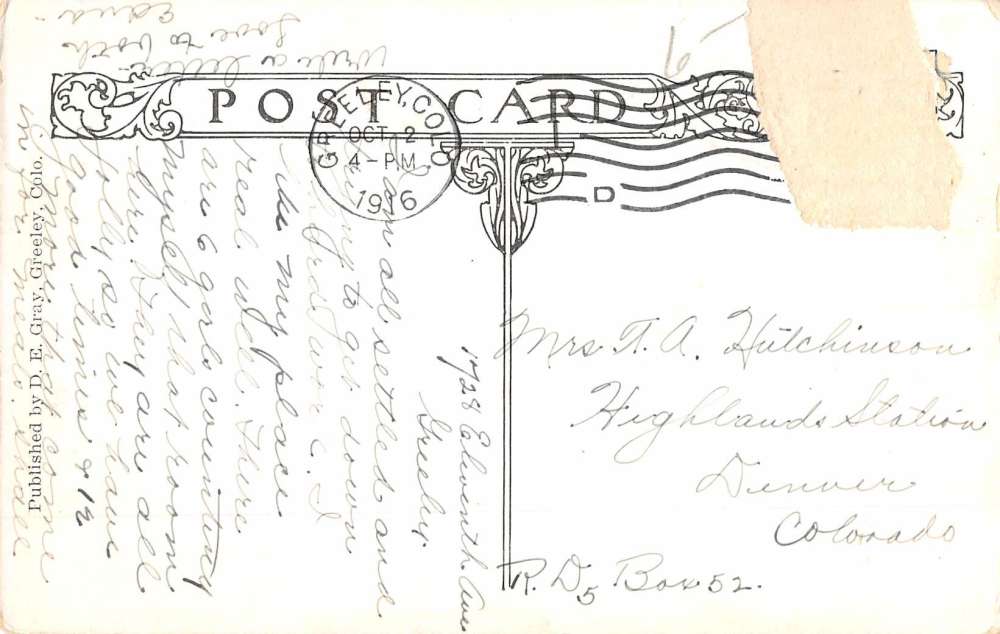 POST CARD
GREELEY, COLO.
OCT 2
4-PM
1916
D
Published by D. E. Gray, Greeley, Colo.
1728 Elevinth Ave
Greeley.
am all settled and
to go down
I
like my place
real well. There
are 6 girls counting
myself, that room
here. They are all
jolly so we have
good times & 12
more that come
in for meals.
Write a letter.
Love to both
Edna.
Mrs. T. A. Hutchinson
Highlands Station
Denver
Colorado
R. D. 5 Box 52.